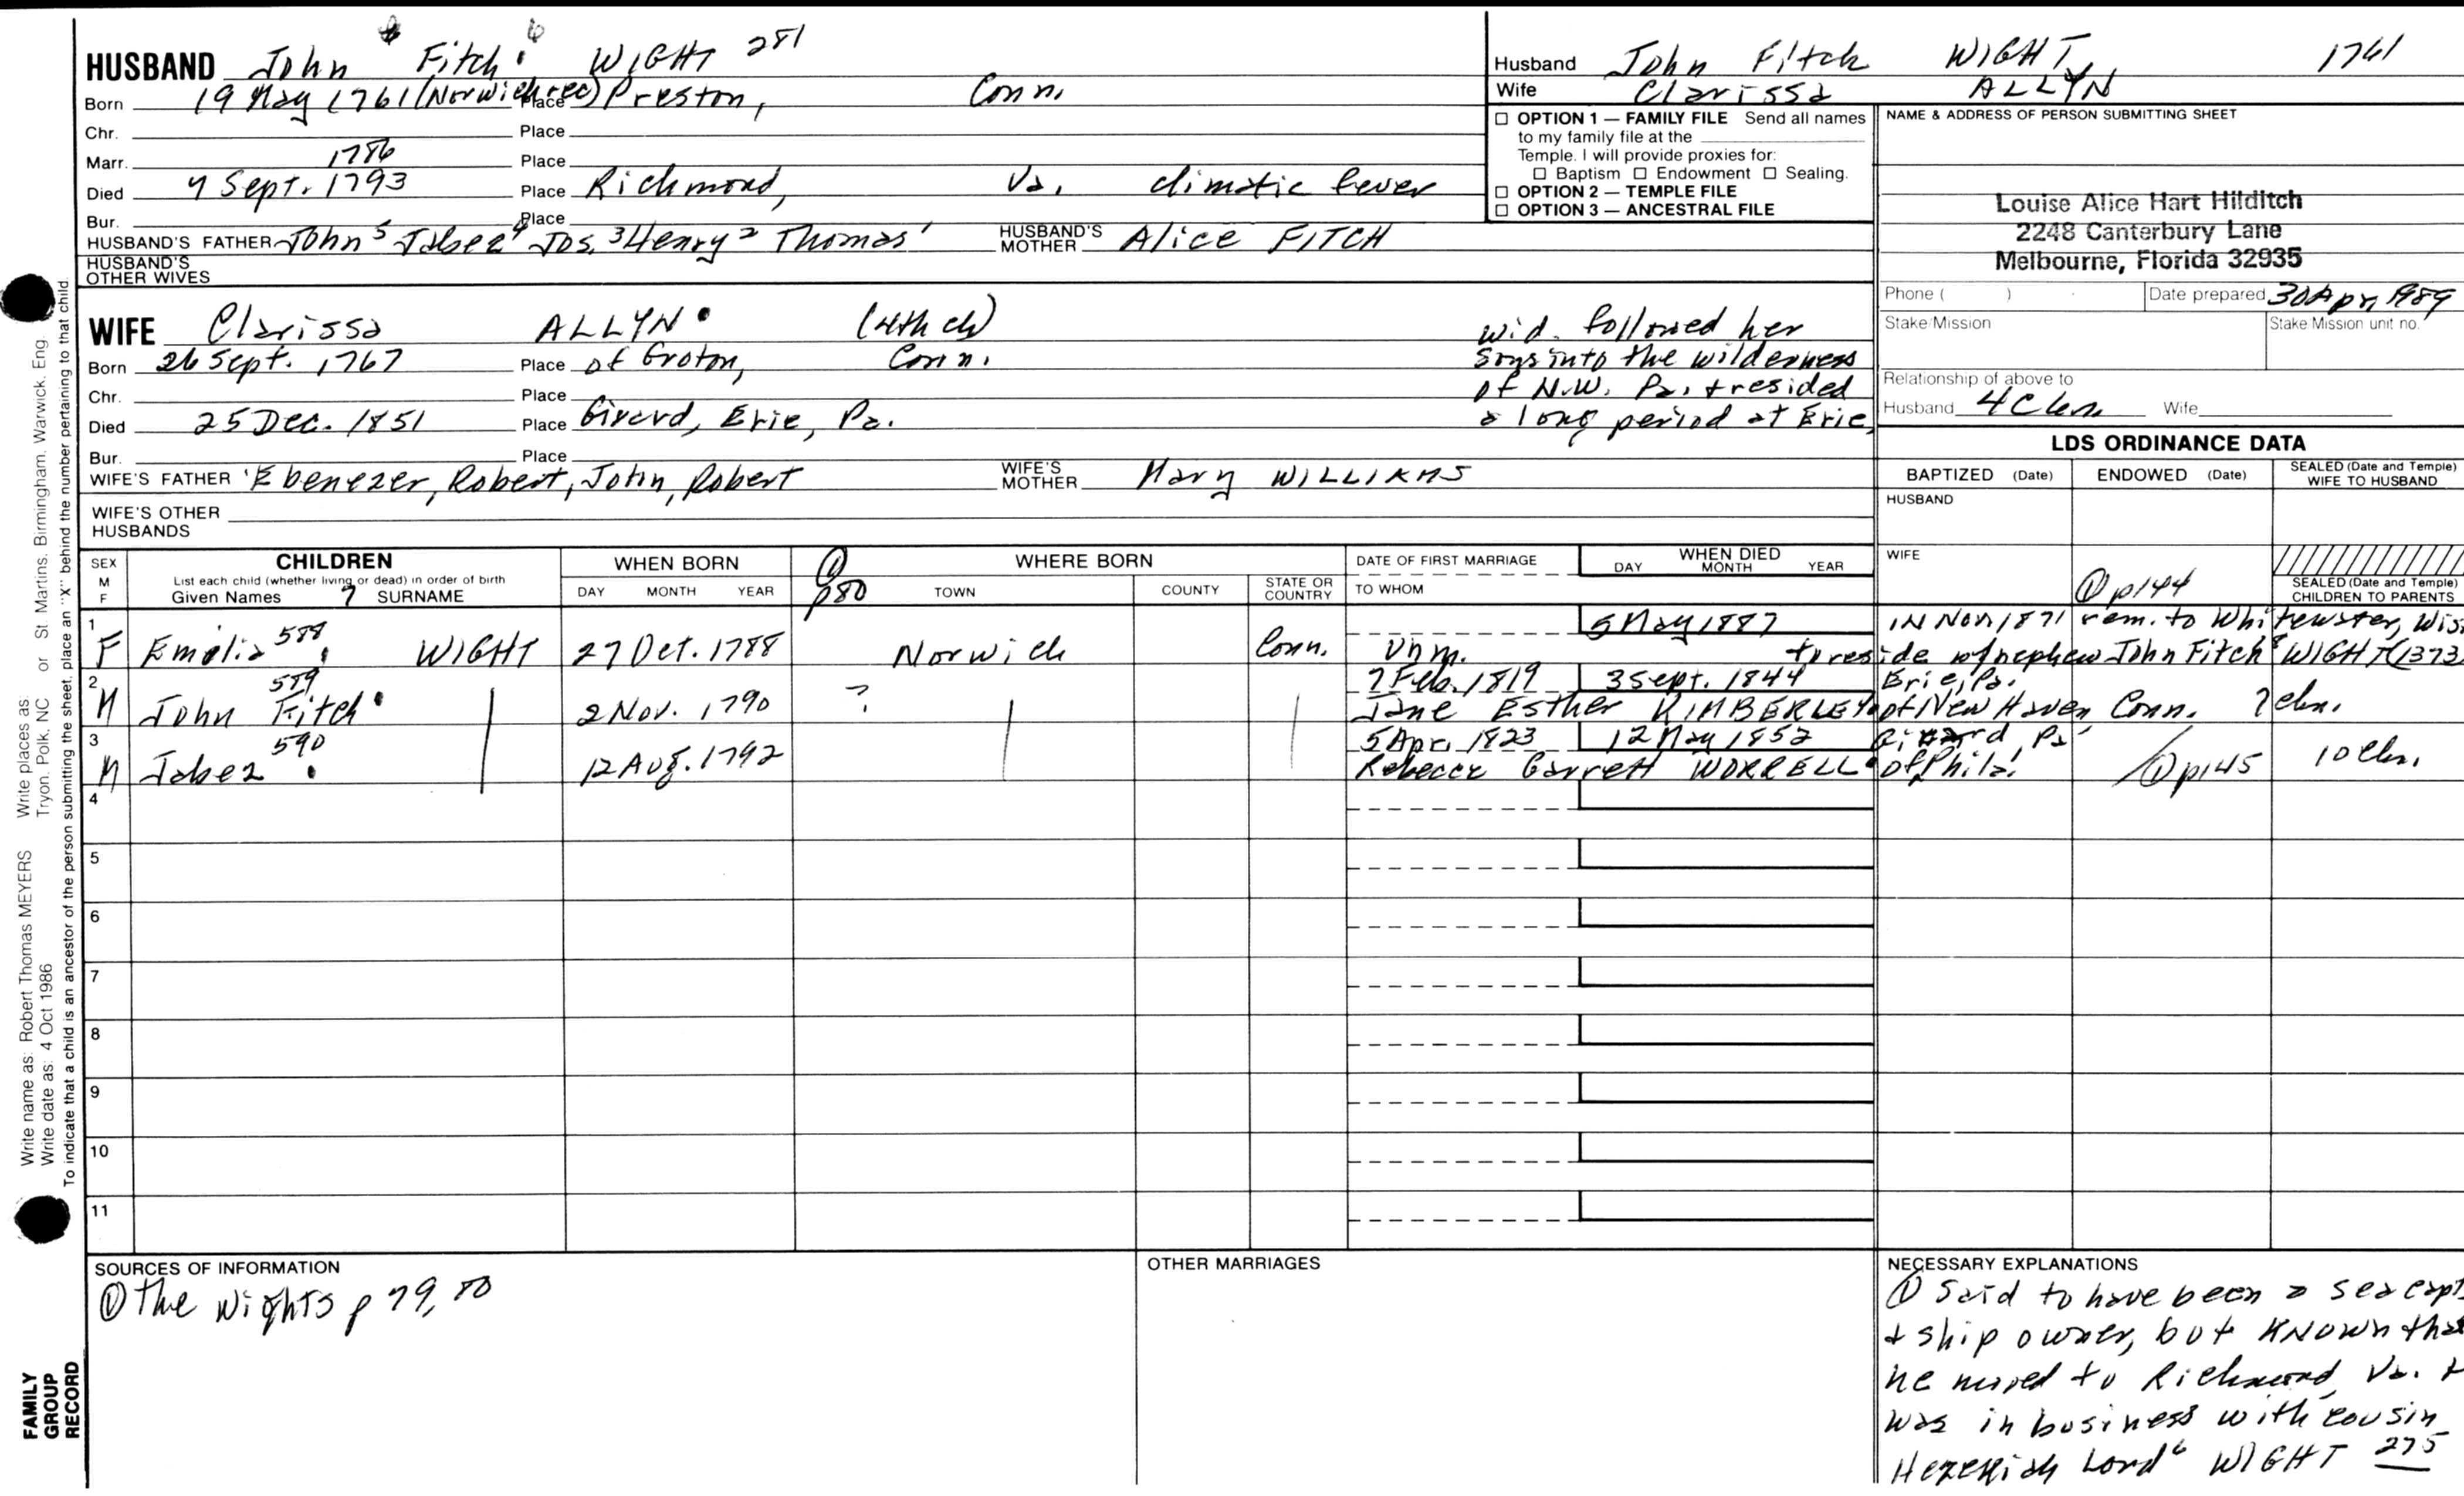 HUSBAND John Fitch 6 WIGHT 281
Born 19 May 1761 (Norwich rec) Place Preston, Conn.
Chr. Place
Marr. 1786 Place
Died 9 Sept. 1793 Place Richmond, Va. climatic fever
Bur. Place
HUSBAND'S FATHER John 5 Jabez 4 Jos. 3 Henry 2 Thomas 1 HUSBAND'S MOTHER Alice FITCH
HUSBAND'S OTHER WIVES
WIFE Clarissa ALLYN (4th ch)
Born 26 Sept. 1767 Place of Groton, Conn.
Chr. Place
Died 25 Dec. 1851 Place Girard, Erie, Pa.
Bur. Place
wid. followed her
sons into the wilderness
of N.W. Pa. + resided
a long period at Erie,
WIFE'S FATHER Ebenezer, Robert, John, Robert WIFE'S MOTHER Mary WILLIAMS
WIFE'S OTHER HUSBANDS
Husband John Fitch WIGHT 1761
Wife Clarissa ALLYN
☐ OPTION 1 — FAMILY FILE Send all names
to my family file at the
Temple. I will provide proxies for:
☐ Baptism ☐ Endowment ☐ Sealing.
☐ OPTION 2 — TEMPLE FILE
☐ OPTION 3 — ANCESTRAL FILE
NAME & ADDRESS OF PERSON SUBMITTING SHEET
Louise Alice Hart Hilditch
2248 Canterbury Lane
Melbourne, Florida 32935
Phone ( ) Date prepared 30 Apr 1989
Stake/Mission Stake Mission unit no.
Relationship of above to
Husband 4C Wife
LDS ORDINANCE DATA
BAPTIZED (Date) ENDOWED (Date) SEALED (Date and Temple) WIFE TO HUSBAND
HUSBAND
WIFE
① p144
SEALED (Date and Temple) CHILDREN TO PARENTS
SEX M F
CHILDREN
List each child (whether living or dead) in order of birth
Given Names 7 SURNAME
WHEN BORN
DAY MONTH YEAR
① p80
WHERE BORN
TOWN COUNTY STATE OR COUNTRY
DATE OF FIRST MARRIAGE
TO WHOM
WHEN DIED
DAY MONTH YEAR
1 F Emelia 588 WIGHT 27 Oct. 1788 Norwich Conn. Unm. 5 May 1887 IN Nov 1871 rem. to Whitewater, Wis.
to reside w/nephew John Fitch 8 WIGHT (1373)
2 M John Fitch 589 2 Nov. 1790 ? 7 Feb. 1819 3 Sept. 1844 Erie, Pa.
Jane Esther KIMBERLEY of New Haven, Conn. 7 chn.
3 M Jabez 590 12 Aug. 1792 5 Apr. 1823 12 May 1852 Girard Pa
Rebecca Garrett WORRELL of Phila. ① p145 10 chn.
4
5
6
7
8
9
10
11
SOURCES OF INFORMATION
① The Wights p 79, 80
OTHER MARRIAGES
NECESSARY EXPLANATIONS
① Said to have been a sea capt.
+ ship owner, but KNOWN that
he moved to Richmond, Va. +
was in business with cousin
Hezekiah Lord 6 WIGHT 275
Write name as: Robert Thomas MEYERS Write places as: Tryon, Polk, NC or St Martins, Birmingham, Warwick, Eng.
Write date as: 4 Oct 1986
To indicate that a child is an ancestor of the person submitting the sheet, place an "X" behind the number pertaining to that child.
FAMILY
GROUP
RECORD